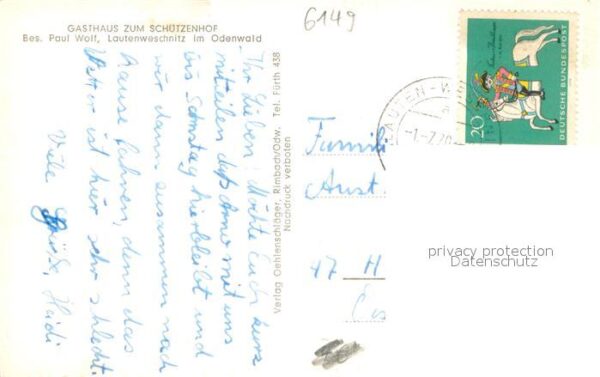 GASTHAUS ZUM SCHÜTZENHOF
Bes. Paul Wolf, Lautenweschnitz im Odenwald
Ihr Lieben! Möchte Euch kurz
mitteilen daß mit uns
bis Sonntag hierbleibt und
wir dann zusammen nach
Hause fahren, denn das
Wetter ist hier sehr schlecht.
Viele Grüße, Heidi
Verlag Oehlenschläger, Rimbach/Odw. Tel. Fürth 438
Nachdruck verboten
6149
LAUTEN-W
-1.-7.70
20
DEUTSCHE BUNDESPOST
Famili
Anst.
47 H
privacy protection
Datenschutz